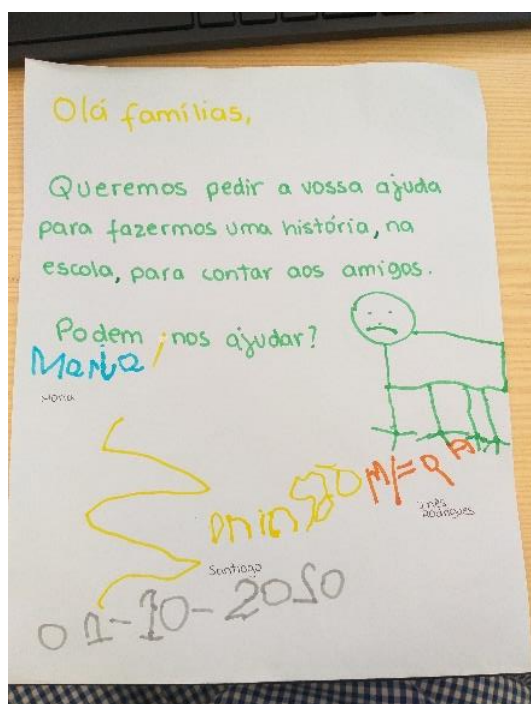 Olá famílias,
Queremos pedir a vossa ajuda
para fazermos uma história, na
escola, para contar aos amigos.
Podem nos ajudar?
Maria
Maria
Santiago
Inês
Rodrigues
01-10-2020